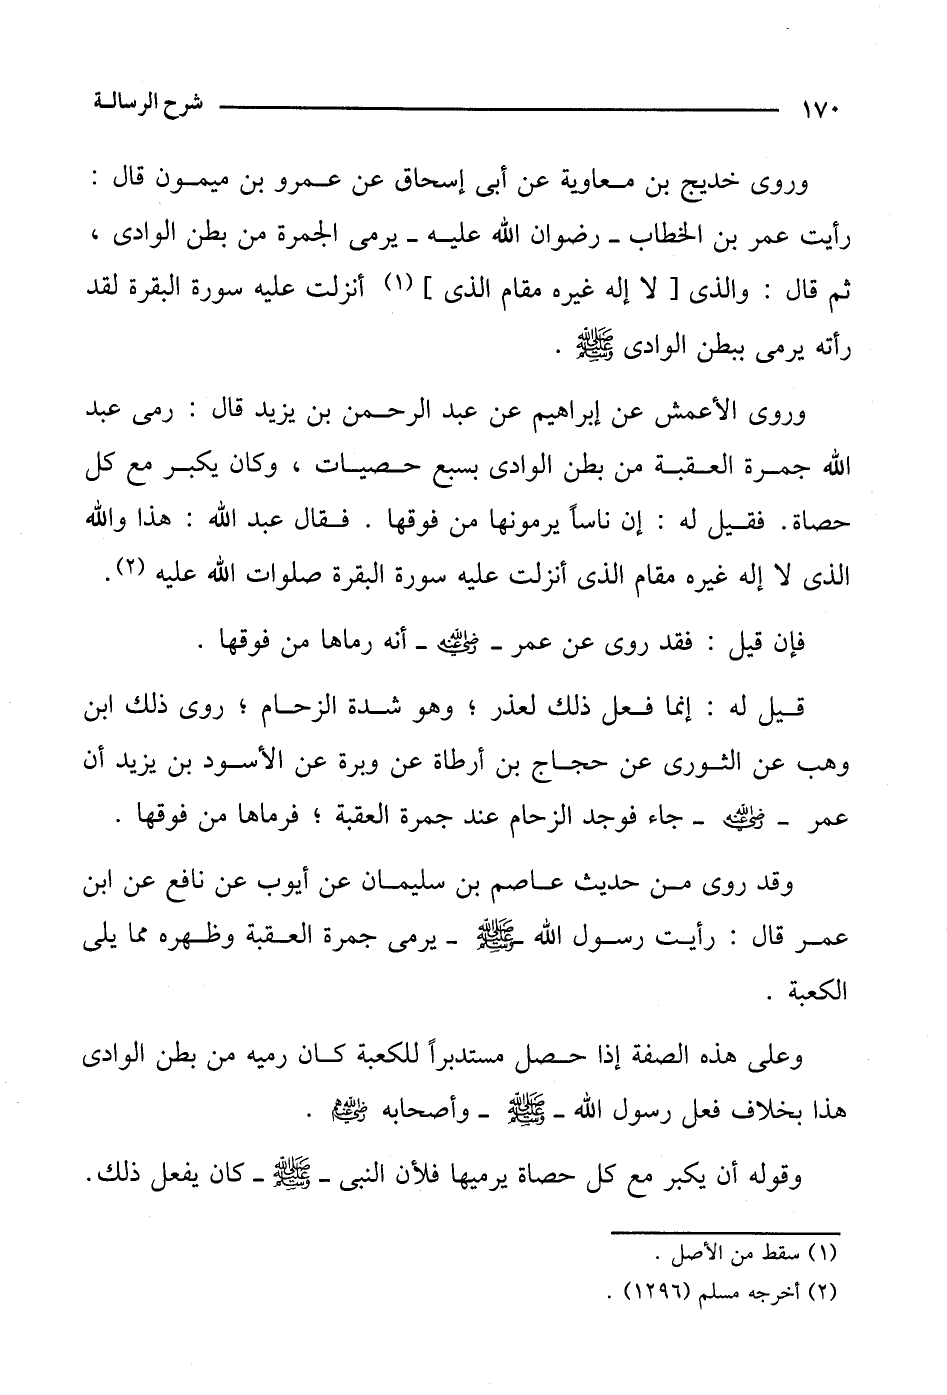 ١٧٠ شرح الرسالة
وروى خديج بن معاوية عن أبى إسحاق عن عمرو بن ميمون قال :
رأيت عمر بن الخطاب ـ رضوان الله عليه ـ يرمى الجمرة من بطن الوادى ،
ثم قال : والذى [ لا إله غيره مقام الذى ] (١) أنزلت عليه سورة البقرة لقد
رأته يرمى ببطن الوادى ﷺ .
وروى الأعمش عن إبراهيم عن عبد الرحمن بن يزيد قال : رمى عبد
الله جمرة العقبة من بطن الوادى بسبع حصيات ، وكان يكبر مع كل
حصاة. فقيل له : إن ناساً يرمونها من فوقها . فقال عبد الله : هذا والله
الذى لا إله غيره مقام الذى أنزلت عليه سورة البقرة صلوات الله عليه (٢).
فإن قيل : فقد روى عن عمر ـ رضي الله عنه ـ أنه رماها من فوقها .
قيل له : إنما فعل ذلك لعذر ؛ وهو شدة الزحام ؛ روى ذلك ابن
وهب عن الثورى عن حجاج بن أرطاة عن وبرة عن الأسود بن يزيد أن
عمر ـ رضي الله عنه ـ جاء فوجد الزحام عند جمرة العقبة ؛ فرماها من فوقها .
وقد روى من حديث عاصم بن سليمان عن أيوب عن نافع عن ابن
عمر قال : رأيت رسول الله ـ ﷺ ـ يرمى جمرة العقبة وظهره مما يلى
الكعبة .
وعلى هذه الصفة إذا حصل مستدبراً للكعبة كان رميه من بطن الوادى
هذا بخلاف فعل رسول الله ـ ﷺ ـ وأصحابه رضي الله عنهم .
وقوله أن يكبر مع كل حصاة يرميها فلأن النبى ـ ﷺ ـ كان يفعل ذلك.
(١) سقط من الأصل .
(٢) أخرجه مسلم (١٢٩٦) .